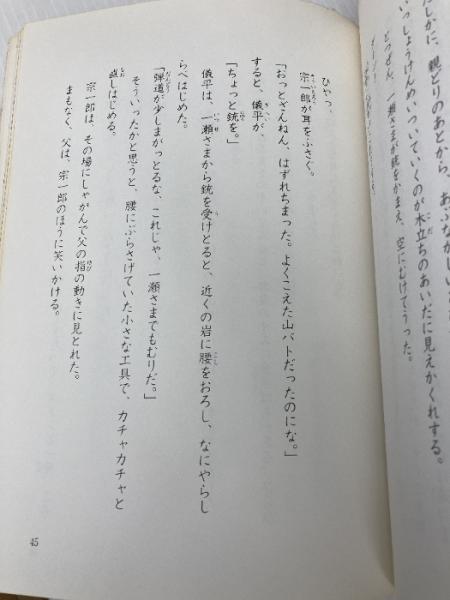 たしかに、親どりのあとから、あぶなかし
いっしょうけんめいついていくのが木立ちのあいだに見えかくれする。
とつぜん、一瀬さまが銃をかまえ、空にむけてうった。
ひやっ。
宗一郎が耳をふさぐ。
「おっとざんねん、はずれちまった。よくこえた山バトだったのにな。」
すると、儀平が、
「ちょっと銃を。」
儀平は、一瀬さまから銃を受けとると、近くの岩に腰をおろし、なにやらし
らべはじめた。
「弾道が少しまがっとるな、これじゃ、一瀬さまでもむりだ。」
そういったかと思うと、腰にぶらさげていた小さな工具で、カチャカチャと
直しはじめる。
宗一郎は、その場にしゃがんで父の指の動きに見とれた。
まもなく、父は、宗一郎のほうに笑いかける。
45